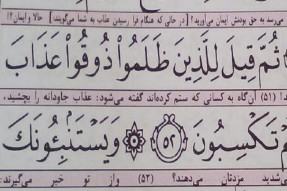 می‌رسد به حق بودنش ایمان می‌آورید؟ (در حالی که هنگام فرا رسیدن عذاب به شما می‌گویند:) حالا و ایمان؟!
ثُمَّ قِيلَ لِلَّذِينَ ظَلَمُواْ ذُوقُواْ عَذَابَ
(۵۱) آن‌گاه به کسانی که ستم کرده‌اند گفته می‌شود: عذاب جاودانه را بچشید،
تَكْسِبُونَ ۵۲ وَيَسْتَنۢبِـُٔونَكَ
می‌شدید مزدتان می‌دهند؟ (۵۲) و از تو خبر می‌گیرند: